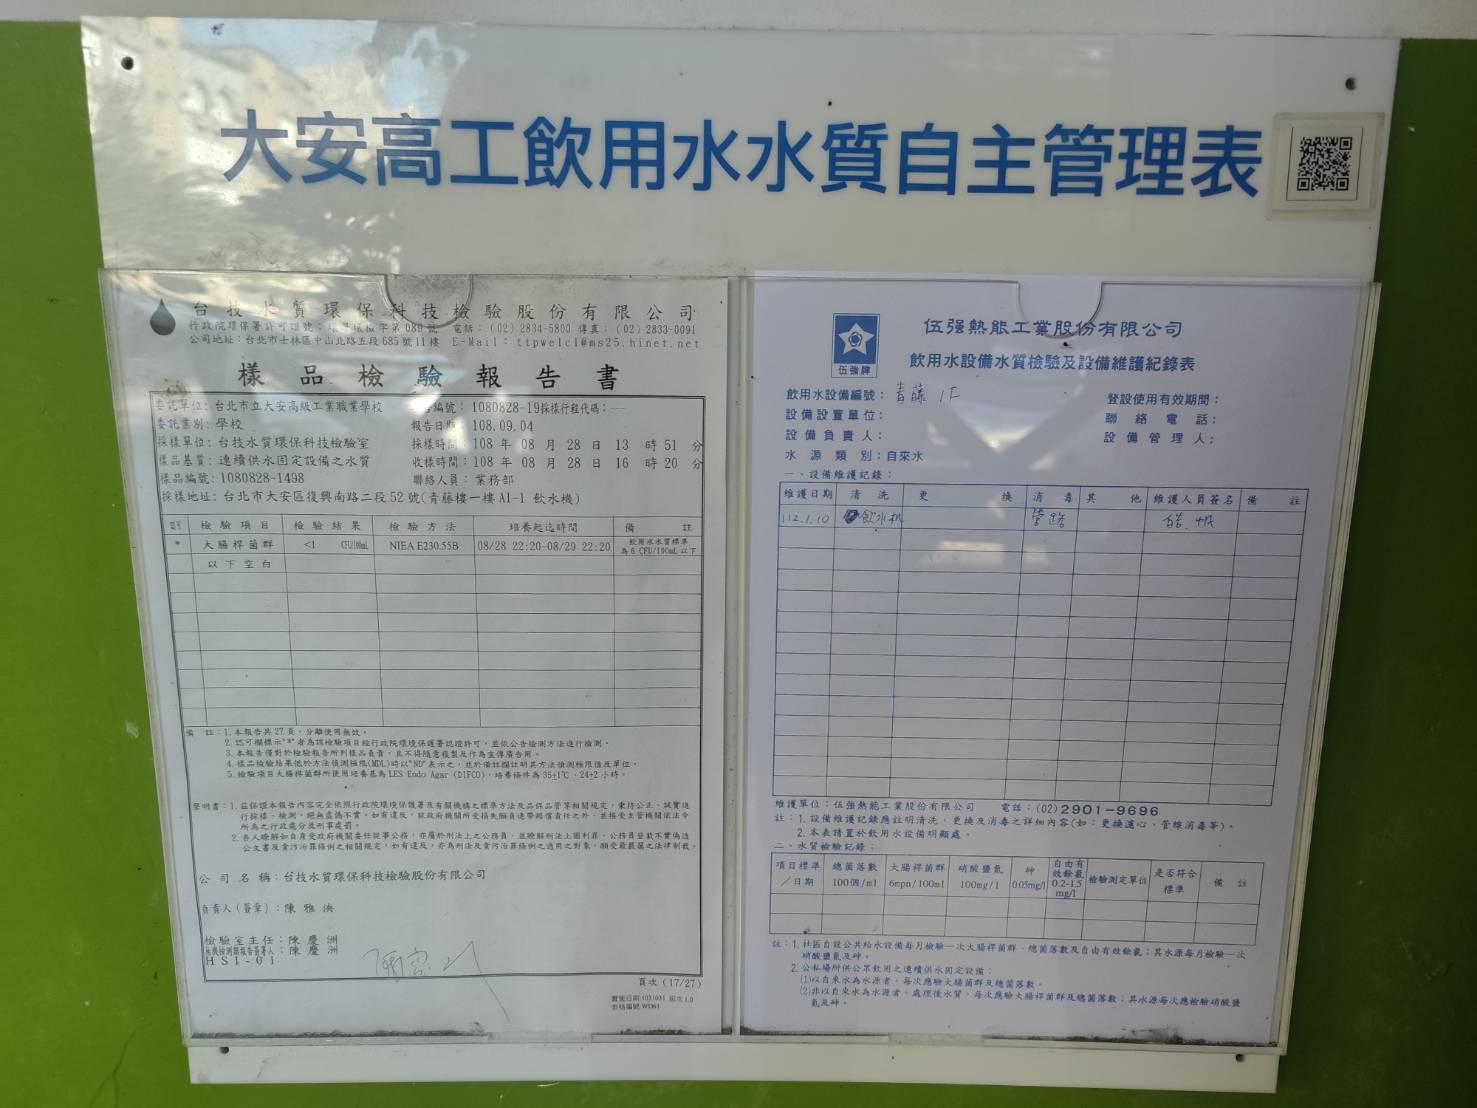 大安高工飲用水水質自主管理表
台技水質環保科技檢驗股份有限公司
行政院環保署許可證號：環署環檢字第089號 電話：(02) 2834-5800 傳真：(02) 2833-0091
公司地址：台北市士林區中山北路五段685號11樓 E-Mail：ttpwelcl@ms25.hinet.net
樣品檢驗報告書
委託單位：台北市立大安高級工業職業學校 報告編號：1080828-19採樣行程代碼：---
委託業別：學校 報告日期：108.09.04
採樣單位：台技水質環保科技檢驗室 採樣時間：108 年 08 月 28 日 13 時 51 分
樣品基質：連續供水固定設備之水質 收樣時間：108 年 08 月 28 日 16 時 20 分
樣品編號：1080828-1498 聯絡人員：業務部
採樣地址：台北市大安區復興南路二段52號(青藤樓一樓A1-1 飲水機)
認可 檢驗項目 檢驗結果 檢驗方法 培養起迄時間 備註
* 大腸桿菌群 <1 CFU/100mL NIEA E230.55B 08/28 22:20-08/29 22:20 飲用水水質標準
為6 CFU/100mL以下
以下空白
備 註：1.本報告共27頁，分離使用無效。
2.認可欄標示"*"者為該檢驗項目經行政院環境保護署認證許可，並依公告檢測方法進行檢測。
3.本報告僅對於檢驗報告所列樣品負責，且不得隨意複製及作為宣傳廣告用。
4.樣品檢驗結果低於方法偵測極限(MDL)時以"ND"表示之，並於備註欄註明其方法偵測極限值及單位。
5.檢驗項目大腸桿菌群所使用培養基為LES Endo Agar (DIFCO)，培養條件為35±1℃，24±2小時。
聲明書：1.茲保證本報告內容完全依照行政院環境保護署及有關機構之標準方法及品保品管等相關規定，秉持公正、誠實進
行採樣、檢測，絕無虛偽不實，如有違反，就政府機關所受損失願負連帶賠償責任之外，並接受主管機關依法令
所為之行政處分及刑事處罰。
2.吾人瞭解如自身受政府機關委任從事公務，亦屬於刑法上之公務員，並瞭解刑法上圖利罪、公務員登載不實偽造
公文書及貪污治罪條例之相關規定，如有違反，亦為刑法及貪污治罪條例之適用之對象，願受最嚴厲之法律制裁。
公司名稱：台技水質環保科技檢驗股份有限公司
負責人(簽章)：陳雅泱
檢驗室主任：陳慶洲
無機檢測類報告簽署人：陳慶洲
HSI-01
頁次 (17/27)
實施日期:1031031 版次1.0
表格編號 WD61
伍強牌
伍強熱能工業股份有限公司
飲用水設備水質檢驗及設備維護紀錄表
飲用水設備編號：青藤 1F 登設使用有效期間：
設備設置單位： 聯絡電話：
設備負責人： 設備管理人：
水源類別：自來水
一、設備維護記錄：
維護日期 清洗 更換 消毒 其他 維護人員簽名 備註
112.1.10 飲水机 管路
維護單位：伍強熱能工業股份有限公司 電話：(02)2901-9696
註：1.設備維護記錄應註明清洗、更換及消毒之詳細內容(如：更換濾心、管線消毒等)。
2.本表請置於飲用水設備明顯處。
二、水質檢驗記錄：
項目標準／日期 總菌落數 100個/ml 大腸桿菌群 6mpn/100ml 硝酸鹽氮 100mg/l 砷 0.05mg/l 自由有效餘氯 0.2-1.5 mg/l 檢驗測定單位 是否符合標準 備註
註：1.社區自設公共給水設備每月檢驗一次大腸桿菌群、總菌落數及自由有效餘氯；其水源每月檢驗一次
硝酸鹽氮及砷。
2.公私場所供公眾飲用之連續供水固定設備：
(1)以自來水為水源者，每次應驗大腸桿菌群及總菌落數。
(2)非以自來水為水源者，處理後水質，每次應驗大腸桿菌群及總菌落數；其水源每次應檢驗硝酸鹽
氮及砷。